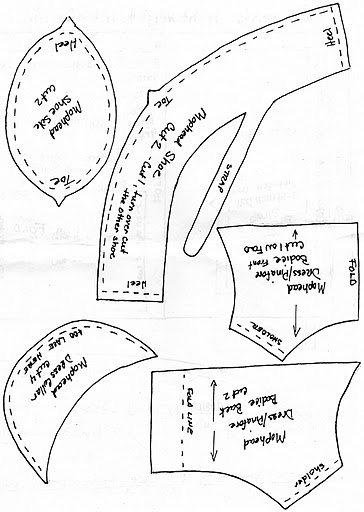 Heel
Mophead
Shoe Sole
cut 2
Toe
Heel
Toe
Mophead Shoe
Cut 2 - Cut 1, turn over cut
the other shoe.
STRAP
Heel
Mophead
Dress/Pinafore
Bodice Front
Cut 1 on Fold
FOLD
SHOLDER
Mophead
Dress Collar
Cut 4
ADD LACE
HERE
Mophead
Dress/Pinafore
Bodice Back
cut 2
FOLD LINE
Sholder